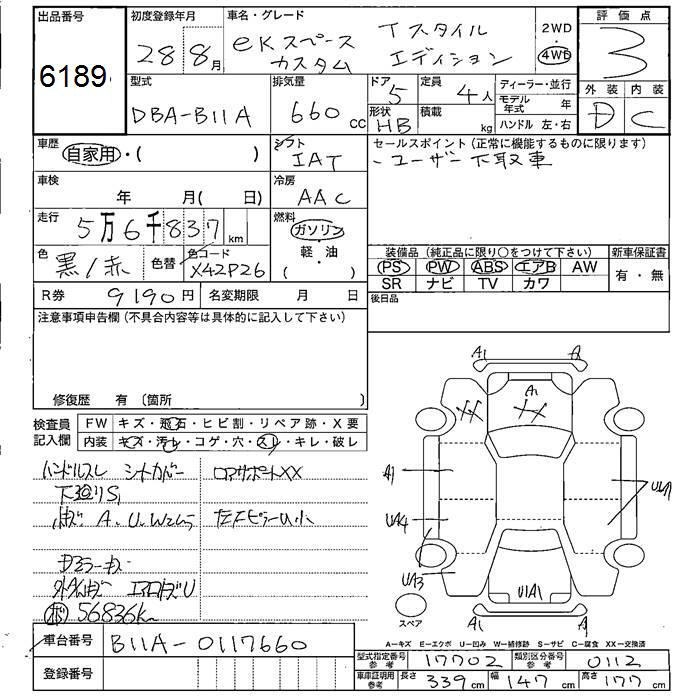 出品番号
6189
初度登録年月
28 8月
車名・グレード
eKスペース Tスタイル
カスタム エディション
2WD
・
4WD
評価点
3
外装 内装
D C
型式
DBA-B11A
排気量
660 cc
ドア 5
形状 HB
定員
4人
積載
kg
ディーラー・並行
モデル年式 年
ハンドル 左・右
車歴
自家用・( )
シフト
IAT
セールスポイント(正常に機能するものに限ります)
・ユーザー下取車
車検
年 月( 日)
冷房
AAC
走行
5万6千837km
燃料
ガソリン
軽・油
( )
色
黒/赤
色替
色コード
X42P26
装備品(純正品に限り○をつけて下さい)
PS PW ABS エアB AW
SR ナビ TV カワ
新車保証書
有・無
R券 9190円
名変期限 月 日
後日品
注意事項申告欄(不具合内容等は具体的に記入して下さい)
修復歴 有〔箇所 〕
検査員
記入欄
FW キズ・飛石・ヒビ割・リペア跡・X要
内装 キズ・汚レ・コゲ・穴・スレ・キレ・破レ
ハンドルスレ シートカバー
ロアサポートXX
下廻りS1
A.U.W2
左Tピラーu小
56836k
車台番号
B11A-0117660
登録番号
A1
A
A1
A1
UA4
UA3
U1A1
A1
A
スペア
A−キズ E−エクボ U−凹み W−補修跡 S−サビ C−腐食 XX−交換済
型式指定番号
参考
17702
類別区分番号
参考
0112
車庫証明用
参考
長さ 339cm
幅 147cm
高さ 177cm